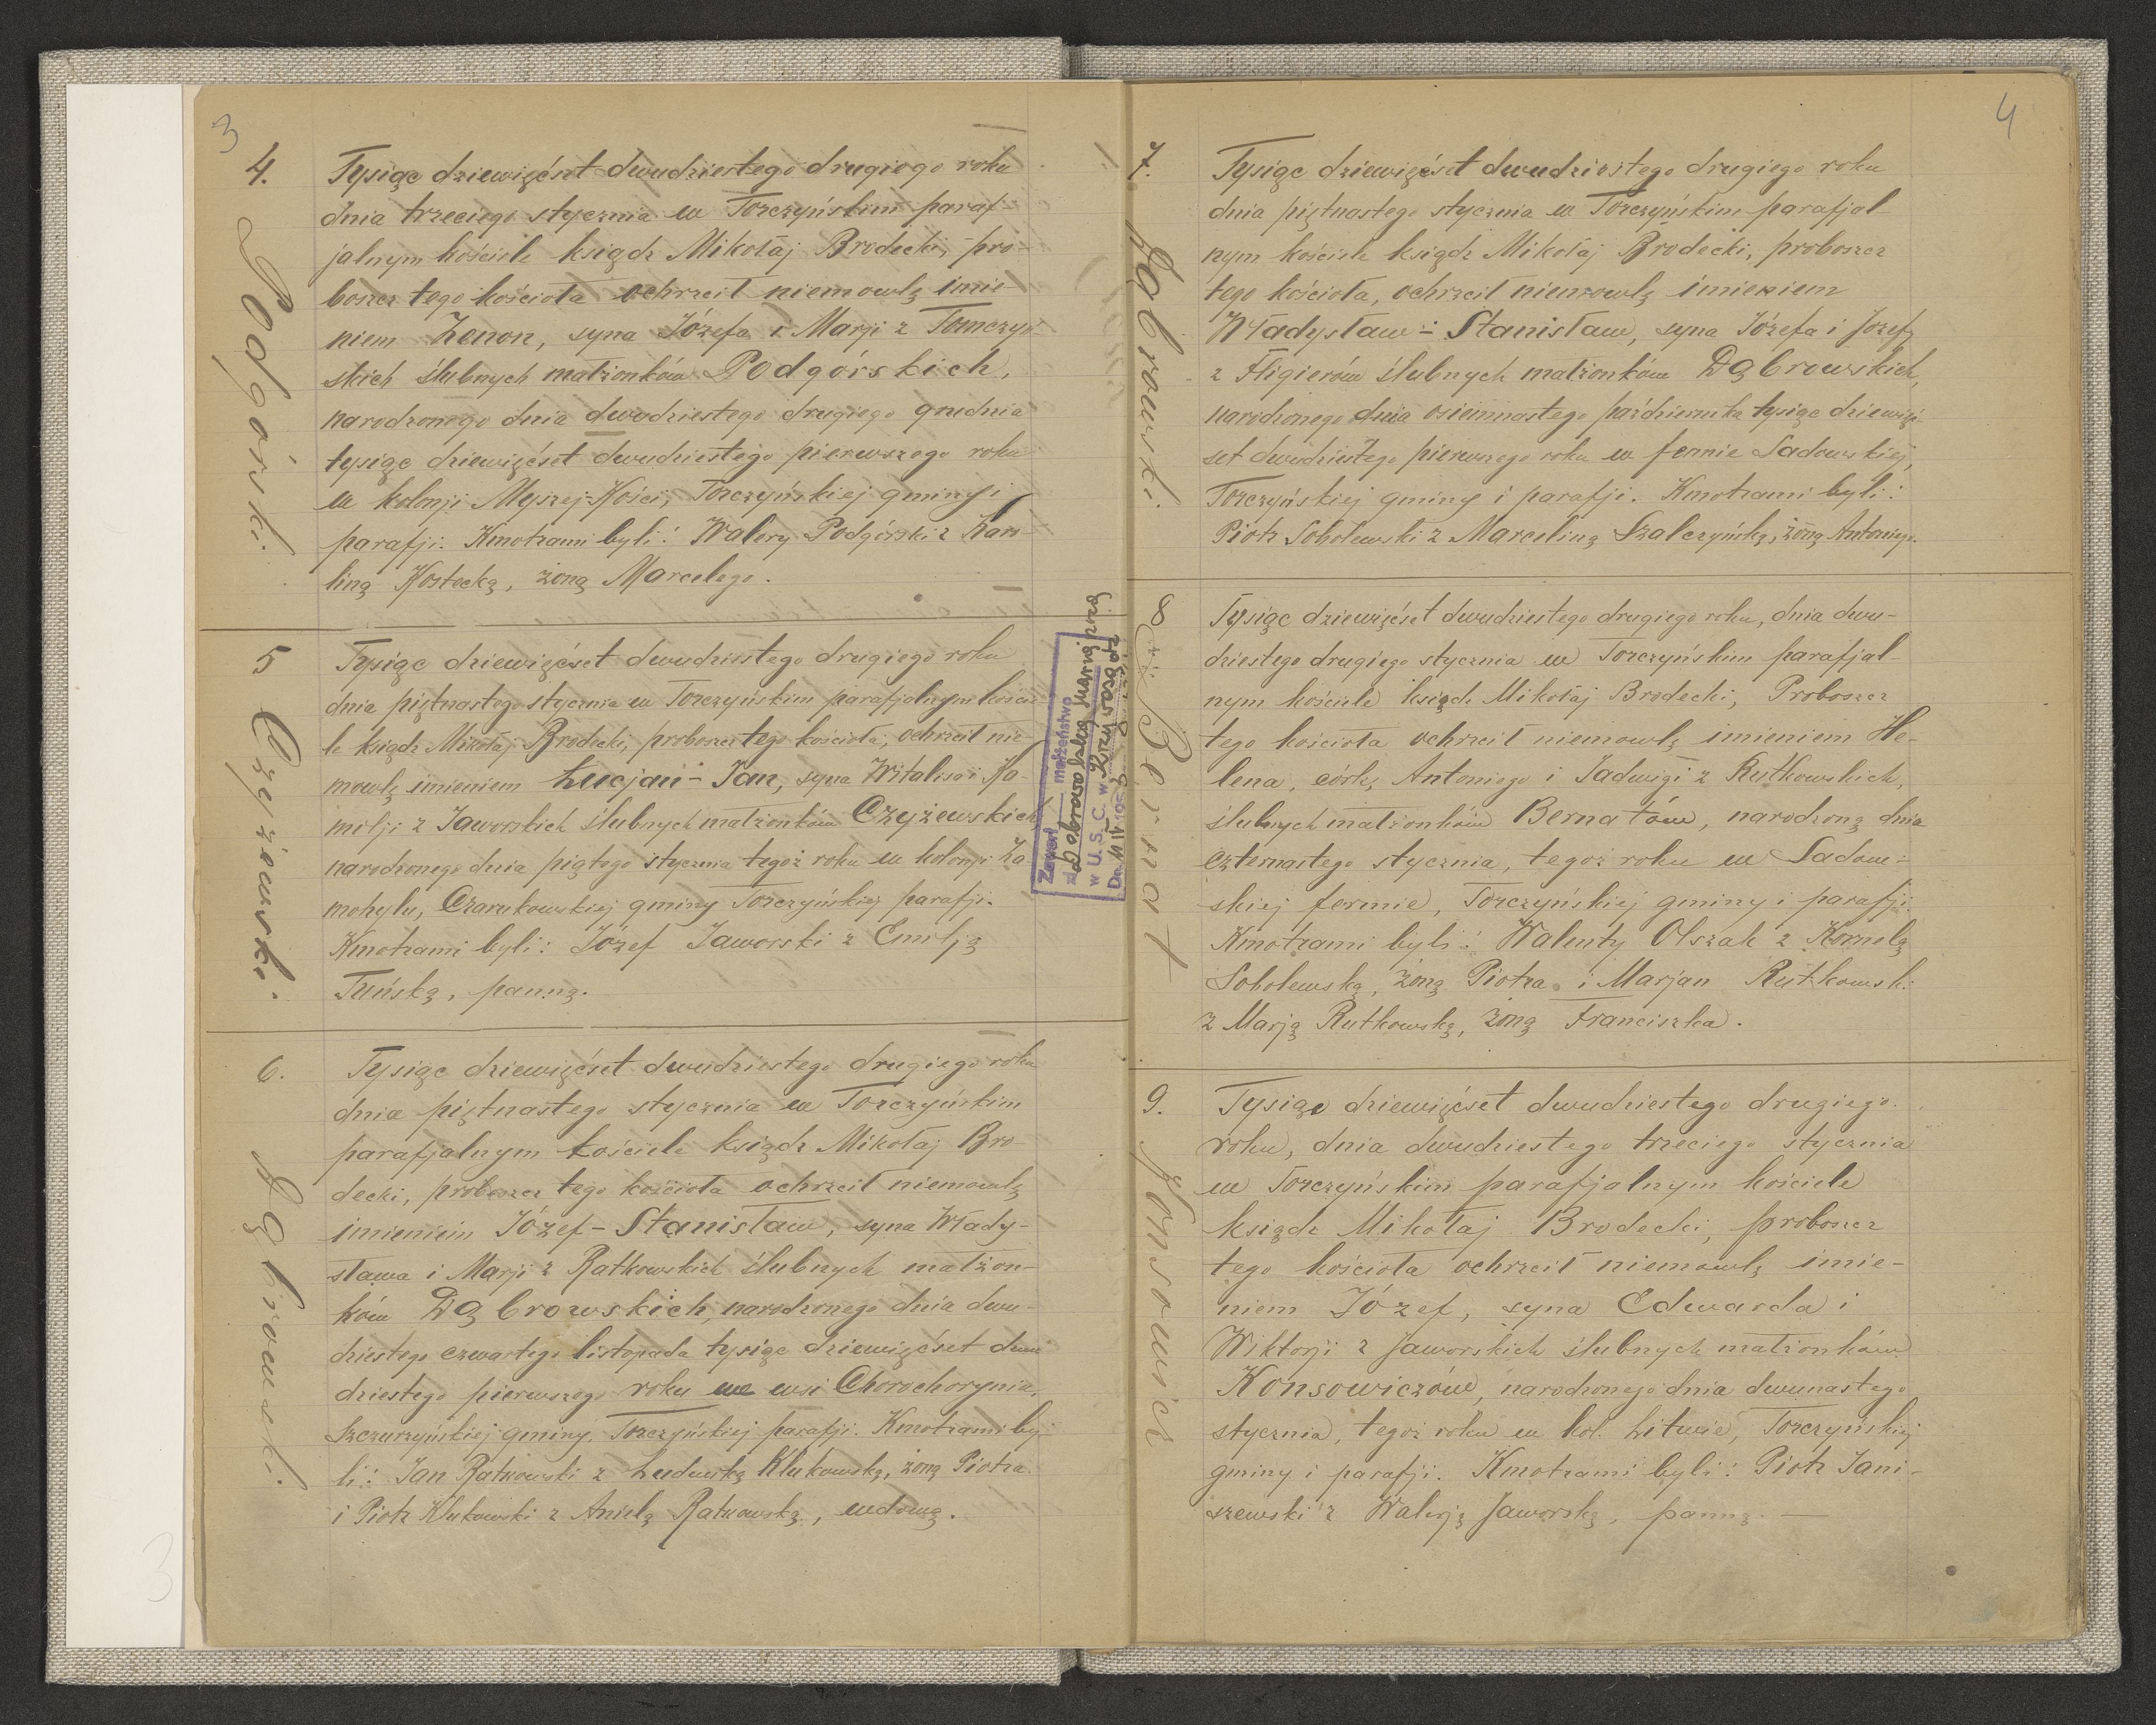 3
4.
Podgórski.
Tysiąc dziewięćset dwudziestego drugiego roku
dnia trzeciego stycznia w Torczyńskim paraf-
jalnym kościele ksiądz Mikołaj Brodecki, pro-
boszcz tego kościoła ochrzcił niemowlę imie-
niem Zenon, syna Józefa i Marji z Tomczyń-
skich ślubnych małżonków Podgórskich,
narodzonego dnia dwudziestego drugiego grudnia
tysiąc dziewięćset dwudziestego pierwszego roku
w kolonji Myszej-Kości, Torczyńskiej gminy i
parafji. Kmotrami byli: Walery Podgórski z Karo-
liną Kostecką, żoną Marcelego.
5
Czyżewski.
Tysiąc dziewięćset dwudziestego drugiego roku
dnia piętnastego stycznia w Torczyńskim parafjalnym koście-
le ksiądz Mikołaj Brodecki, proboszcz tego kościoła, ochrzcił nie-
mowlę imieniem Łucjan-Jan, syna Witalisa i Ja-
milji z Jaworskich ślubnych małżonków Czyżewskich
narodzonego dnia piątego stycznia tegoż roku w kolonji Za
mohylu, Czarukowskiej gminy Torczyńskiej parafji.
Kmotrami byli: Józef Jaworski z Emilją
panną.
Zawarł małżeństwo
z Dobrowolską Marią
w U.S.C. w
6.
Dąbrowski.
Tysiąc dziewięćset dwudziestego drugiego roku
dnia piętnastego stycznia w Torczyńskim
parafjalnym kościele ksiądz Mikołaj Bro-
decki, proboszcz tego kościoła ochrzcił niemowlę
imieniem Józef-Stanisław, syna Włady-
sława i Marji z Ratkowskich ślubnych małżon-
ków Dąbrowskich, narodzonego dnia dwu-
dziestego czwartego listopada tysiąc dziewięćset dwu
dziestego pierwszego roku we wsi Chorochorynie,
Szczurzyńskiej gminy, Torczyńskiej parafji. Kmotrami by
li: Jan Ratkowski z Ludwiką Klukowską, żoną Piotra
i Piotr Klukowski z Anielą Ratkowską, wdową.
4
7.
Dąbrowski.
Tysiąc dziewięćset dwudziestego drugiego roku
dnia piętnastego stycznia w Torczyńskim parafjal-
nym kościele ksiądz Mikołaj Brodecki, proboszcz
tego kościoła, ochrzcił niemowlę imieniem
Władysław-Stanisław, syna Józefa i Józefy
z Fligierów ślubnych małżonków Dąbrowskich,
narodzonego dnia osiemnastego października tysiąc dziewięć-
set dwudziestego pierwszego roku w fermie Sadowskiej,
Torczyńskiej gminy i parafji. Kmotrami byli:
Piotr Sobolewski z Marceliną Szalczyńską, żoną Antoniego.
8
Bernat
Tysiąc dziewięćset dwudziestego drugiego roku, dnia dwu-
dziestego drugiego stycznia w Torczyńskim parafjal-
nym kościele ksiądz Mikołaj Brodecki, Proboszcz
tego kościoła ochrzcił niemowlę imieniem He-
lena, córkę Antoniego i Jadwigi z Rutkowskich,
ślubnych małżonków Bernatów, narodzoną dnia
czternastego stycznia, tegoż roku w Sadow-
skiej fermie, Torczyńskiej gminy i parafji.
Kmotrami byli: Walenty Olszak z Kornelą
Sobolewską, żoną Piotra i Marjan Rutkowski
z Marją Rutkowską, żoną Franciszka.
9.
Konsowicz
Tysiąc dziewięćset dwudziestego drugiego
roku, dnia dwudziestego trzeciego stycznia
w Torczyńskim parafjalnym kościele
ksiądz Mikołaj Brodecki, proboszcz
tego kościoła ochrzcił niemowlę imie-
niem Józef, syna Edwarda i
Wiktorji z Jaworskich ślubnych małżonków
Konsowiczów, narodzonego dnia dwunastego
stycznia, tegoż roku w kol. Litwie, Torczyńskiej
gminy i parafji. Kmotrami byli: Piotr Jani-
szewski z Walerją Jaworską, panną. —
3